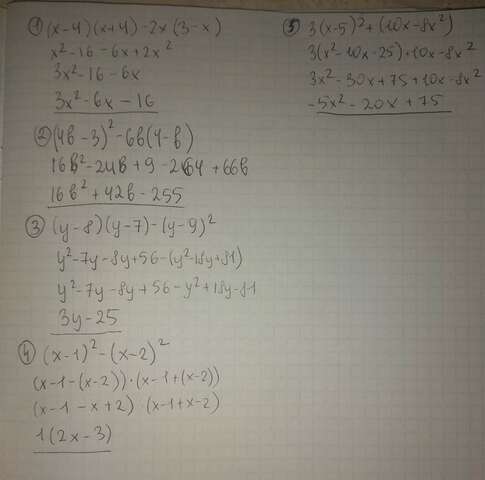 1) (x-4)(x+4)-2x(3-x)
x²-16-6x+2x²
3x²-16-6x
3x²-6x-16
2) (4b-3)²-6b(4-b)
16b²-24b+9-264+66b
16b²+42b-255
3) (y-8)(y-7)-(y-9)²
y²-7y-8y+56-(y²-18y+81)
y²-7y-8y+56-y²+18y-81
3y-25
4) (x-1)²-(x-2)²
(x-1-(x-2))·(x-1+(x-2))
(x-1-x+2)·(x-1+x-2)
1(2x-3)
5) 3(x-5)²+(10x-8x²)
3(x²-10x-25)+10x-8x²
3x²-30x+75+10x-8x²
-5x²-20x+75